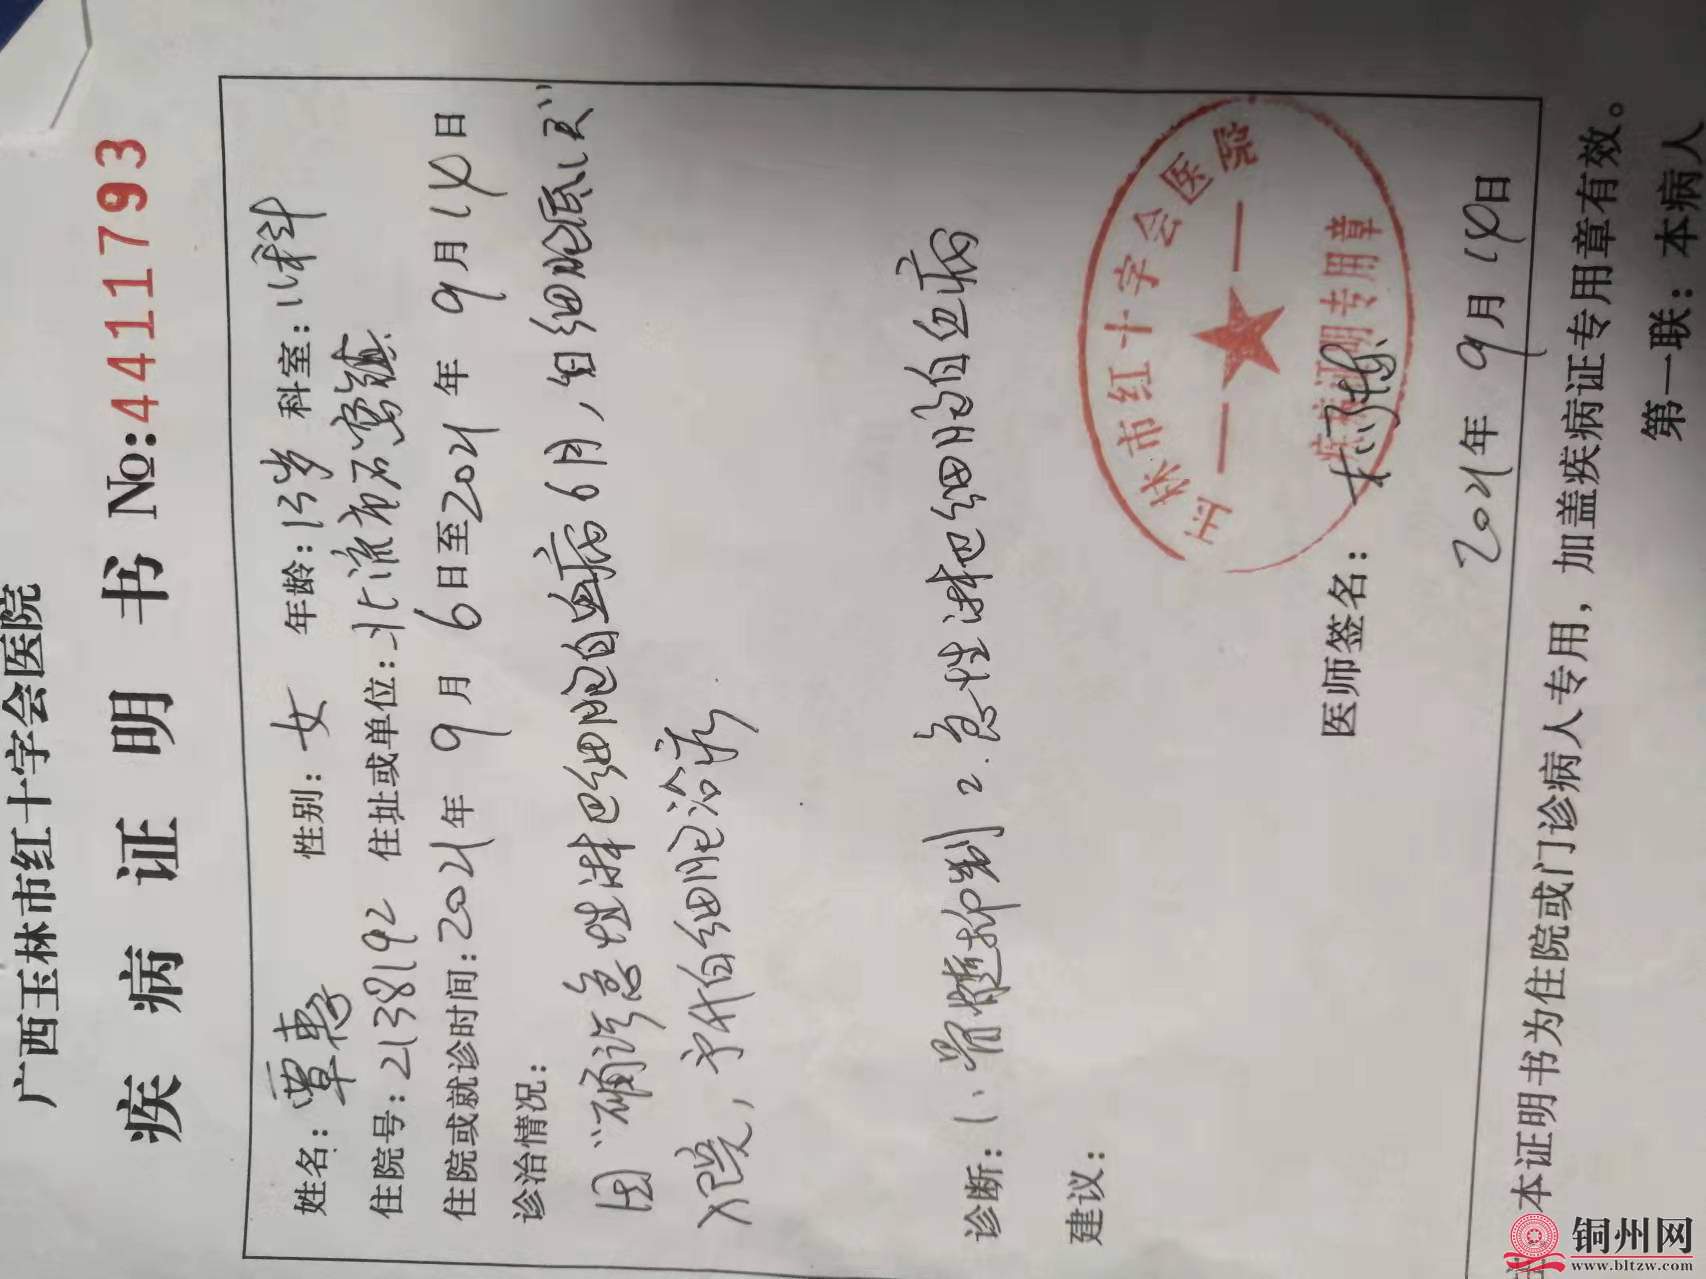 广西玉林市红十字会医院
疾病证明书 №:4411793
姓名:覃惠 性别:女 年龄:13岁 科室:儿科
住院号:2138192 住址或单位:北流市石窝镇
住院或就诊时间:2021年9月6日至2021年9月14日
诊治情况:
因"确诊急性淋巴细胞白血病6月,白细胞低1天"
入院,予升白细胞治疗
诊断:1、骨髓抑制 2.急性淋巴细胞白血病
建议:
玉林市红十字会医院
疾病证明专用章
医师签名:
2021年9月14日
本证明书为住院或门诊病人专用,加盖疾病证专用章有效。
第一联:本病人
铜州网
www.bltzw.com